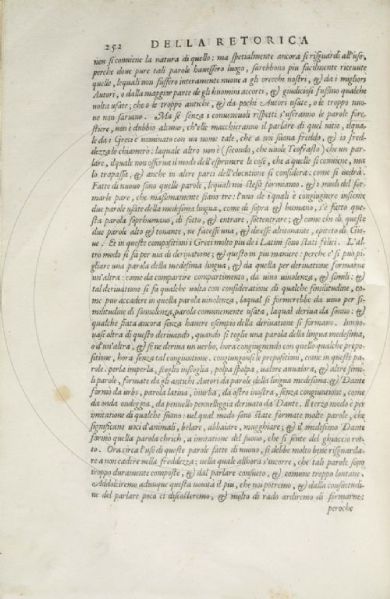 252 DELLA RETORICA
non si conviene la natura di quello: ma spetialmente ancora si risguardi all'uso,
perche dove pure tali parole havessero luogo, sarebbono piu facilmente ricevute
quelle, lequali non fussero interamente nuove a gli orecchi nostri, & da i migliori
Autori, o dalla maggior parte de gli huomini accorti, & giudiciosi fussino qualche
volta usate; che o le troppo antiche, & da pochi Autori usate, o le troppo nuo-
ne non saranno. Ma se senza i convenevoli rispetti s'useranno le parole fore-
stiere, non è dubbio alcuno, ch'elle macchieranno il parlare di quel vitio, ilqua-
le da i Greci è nominato con un nome tale, che a noi suona freddo, & io fred-
dezza lo chiamerò: laquale altro non è (secondo, che vuole Teofrasto) che un par-
lare, ilquale non osserva il modo dell'esprimere le cose, che a quelle si conviene, ma
lo trapassa, & anche in altre parti dell'elocutione si considera: come si vedrà.
Fatte di nuovo sono quelle parole, lequali noi stessi formiamo. & i modi del for-
marle pare, che massimamente siano tre: l'uno de i quali è congiugnere insieme
due parole usate della medesima lingua, come di sopra & humano, s'è fatto que-
sta parola soprhumano, di sotto, & entrare, sottentrare; & come chi di queste
due parole alto & tonante, ne facesse una, & dicesse altitonante, epiteto di Gio-
ve. Et in queste compositioni i Greci molto piu de i Latini sono stati felici. L'al-
tro modo si fa per via di derivatione; & questo in piu maniere: perche e' si può pi-
gliare una parola della medesima lingua, & da quella per derivatione formarne
un'altra: come da compartire compartimento, da vino vinolenza, & simili: &
tal derivatione si fa qualche volta con consideratione di qualche similitudine, co-
me può accadere in questa parola vinolenza, laqual si formerebbe da vino per si-
militudine di sonnolenza, parola comunemente usata, laqual deriva da sonno: &
qualche fiata ancora senza havere esempio della derivatione si formano. Inno-
vasi altra di questo derivando, quando si toglie una parola della lingua medesima,
o d'un'altra, & se ne deriva un verbo, hora congiungendo con quello qualche prepo-
sitione, hora senza tal congiuntione. congiungonsi le prepositioni, come in queste pa-
role. perla imperla, foglio
parole, formate da gli antichi Autori da parole della lingua medesima. & Dante
formò da urbs, parola latina, inurba, da ostro inostra, senza congiuntione, come
da onda ondeggia, da pennello pennelleggia derivato da Dante. Il terzo modo è per
imitatione di qualche suono: nel qual modo sono state formate molte parole, che
significano voci d'animali, belare, abbaiare, mugghiare; & il medesimo Dante
formò quella parola chrich, a imitatione del suono, che si sente del ghiaccio rot-
to. Ora circa l'usi di queste parole fatte di nuovo, si debbe molto bene risguarda-
re a non cadere nella freddezza: nella quale allhora s'incorre, che tali parole sono
troppo duramente composte, & dal parlare consueto, & comune troppo lontane.
Addolciremo adunque questa novità il piu, che noi potremo, & dalla consuetudi-
ne del parlare poco ci discosteremo, & molto di rado ardiremo di formarne:
peroche